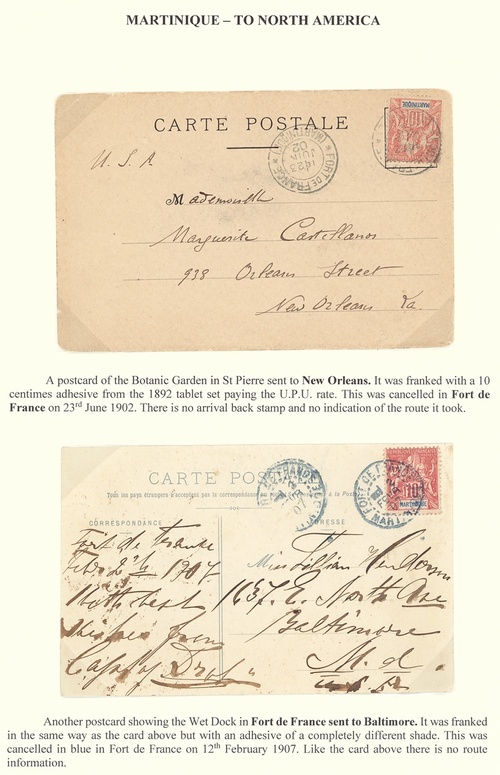 MARTINIQUE – TO NORTH AMERICA
CARTE POSTALE
MARTINIQUE
10
FORT DE FRANCE
MARTINIQUE
23
JUIN
02
U. S. A
Mademoiselle
Marguerite Castellanos
938 Orleans Street
New Orleans La.
A postcard of the Botanic Garden in St Pierre sent to New Orleans. It was franked with a 10
centimes adhesive from the 1892 tablet set paying the U.P.U. rate. This was cancelled in Fort de
France on 23rd June 1902. There is no arrival back stamp and no indication of the route it took.
CARTE POS
Tous les pays étrangers n'acceptent pas la correspondance
CORRESPONDANCE
FORT DE FRANCE
10
MARTINIQUE
Fort de France
1907
With best
wishes from
Miss Lillian Henderson
1637. E. North Ave
Baltimore
M.d.
U.S.A
Another postcard showing the Wet Dock in Fort de France sent to Baltimore. It was franked
in the same way as the card above but with an adhesive of a completely different shade. This was
cancelled in blue in Fort de France on 12th February 1907. Like the card above there is no route
information.